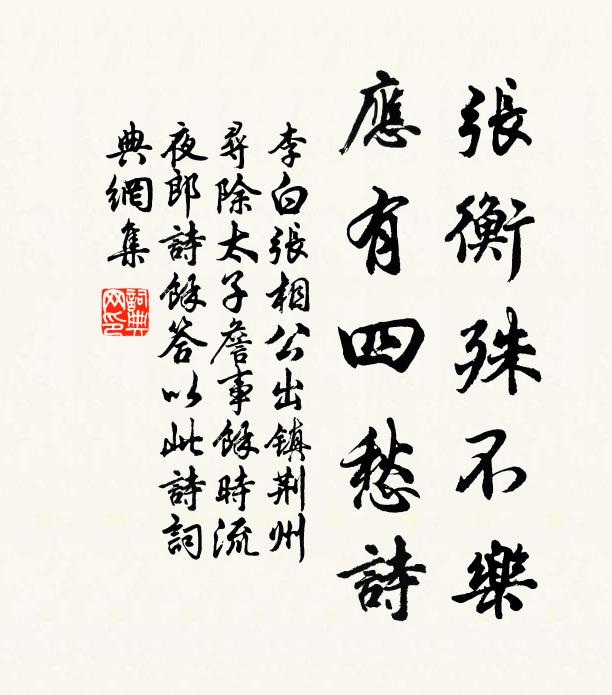 張衡殊不樂
應有四愁詩
李白張相公出鎮荆州
尋除太子詹事餘時流
夜郎詩餘答以此詩詞
典網集
詞典網印